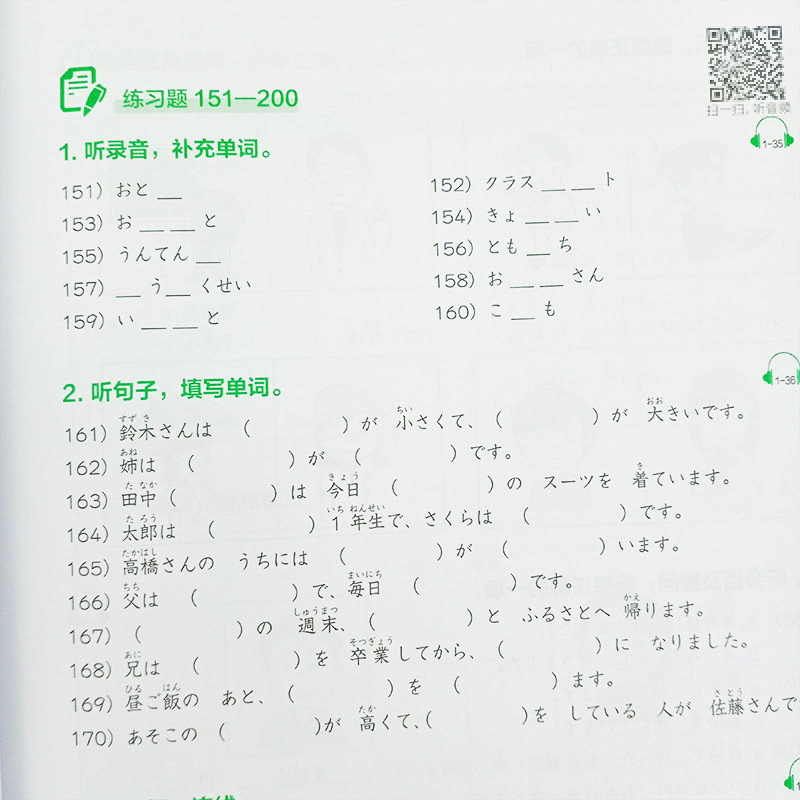 扫一扫，听音频
练习题 151—200
1-35
1. 听录音，补充单词。
151）おと __
152）クラス __ __ ト
153）お __ __ と
154）きょ __ __ い
155）うんてん __
156）とも __ ち
157）__ う__ くせい
158）お __ __ さん
159）い __ __ と
160）こ __ も
1-36
2. 听句子，填写单词。
すず き ちい おお
161）鈴木さんは （ ）が 小さくて、（ ）が 大きいです。
あね
162）姉は （ ）が（ ）です。
た なか きょう き
163）田中（ ）は 今日 （ ）の スーツを 着ています。
た ろう いち ねんせい
164）太郎は （ ）1 年生で、さくらは （ ）です。
たかはし
165）高橋さんの うちには （ ）が （ ）います。
ちち まいにち
166）父は （ ）で、毎日 （ ）です。
しゅうまつ かえ
167）（ ）の 週末、（ ）と ふるさとへ 帰ります。
あに そつぎょう
168）兄は （ ）を 卒業してから、（ ）に なりました。
ひる はん
169）昼ご飯の あと、（ ）を （ ）ます。
たか さ とう
170）あそこの （ ）が 高くて、（ ）を している 人が 佐藤さんで